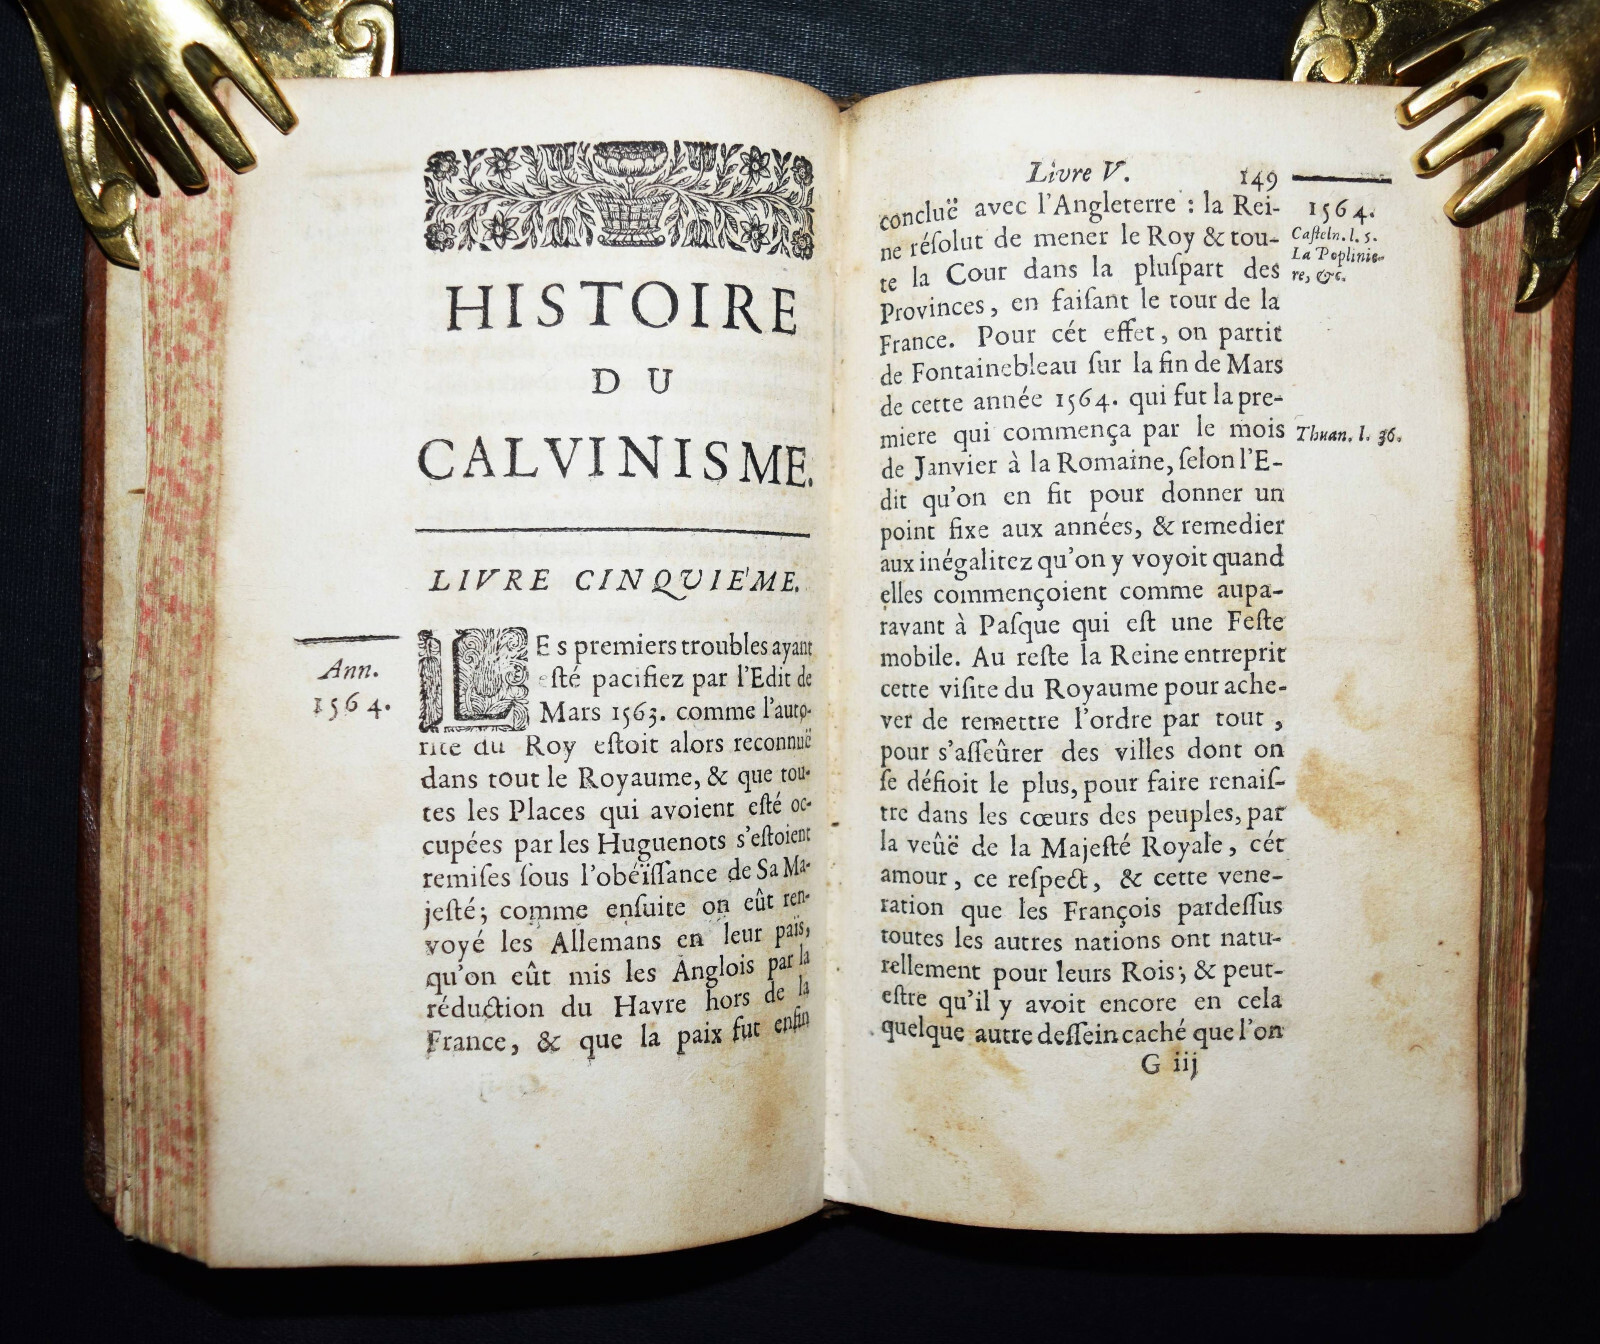 HISTOIRE
DU
CALVINISME.
LIVRE CINQVIE'ME.
Ann.
1564.
LEs premiers troubles ayant
eſté pacifiez par l'Edit de
Mars 1563. comme l'auto-
rité du Roy eſtoit alors reconnuë
dans tout le Royaume, & que tou-
tes les Places qui avoient eſté oc-
cupées par les Huguenots s'eſtoient
remiſes ſous l'obéïſſance de Sa Ma-
jeſté; comme enſuite on eût ren-
voyé les Allemans en leur païs,
qu'on eût mis les Anglois par la
réduction du Havre hors de la
France, & que la paix fut enfin
Livre V. 149
concluë avec l'Angleterre : la Rei-
ne réſolut de mener le Roy & tou-
te la Cour dans la pluſpart des
Provinces, en faiſant le tour de la
France. Pour cét effet, on partit
de Fontainebleau ſur la fin de Mars
de cette année 1564. qui fut la pre-
miere qui commença par le mois
de Janvier à la Romaine, ſelon l'E-
dit qu'on en fit pour donner un
point fixe aux années, & remedier
aux inégalitez qu'on y voyoit quand
elles commençoient comme aupa-
ravant à Paſque qui eſt une Feſte
mobile. Au reſte la Reine entreprit
cette viſite du Royaume pour ache-
ver de remettre l'ordre par tout ,
pour s'aſſeûrer des villes dont on
ſe défioit le plus, pour faire renaiſ-
tre dans les cœurs des peuples, par
la veûë de la Majeſté Royale, cét
amour, ce reſpect, & cette vene-
ration que les François pardeſſus
toutes les autres nations ont natu-
rellement pour leurs Rois; & peut-
eſtre qu'il y avoit encore en cela
quelque autre deſſein caché que l'on
G iij
1564.
Caſteln. l. 5.
La Poplinie-
re, &c.
Thuan. l. 36.